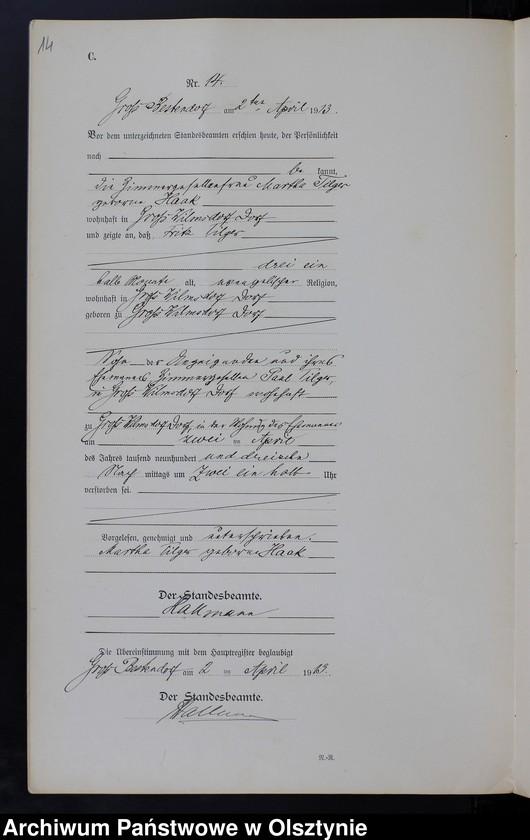 14
C.
Nr. 14.
Groß Bestendorf am 2ten April 1913.
Vor dem unterzeichneten Standesbeamten erschien heute, der Persönlichkeit
nach
be kannt,
die Zimmergesellenfrau Martha Tilger
geborene Haak
wohnhaft in Groß Wilmsdorf Dorf
und zeigte an, daß Fritz Tilger
drei ein
halb Monate alt, evangelischer Religion,
wohnhaft in Groß Wilmsdorf Dorf
geboren zu Groß Wilmsdorf Dorf
Sohn der Anzeigenden und ihres
Ehemannes Zimmergesellen Paul Tilger,
in Groß Wilmsdorf Dorf wohnhaft
zu Groß Wilmsdorf Dorf, in der Wohnung des Ehemannes
am zwei ten April
des Jahres tausend neunhundert und dreizehn
Nach mittags um zwei ein halb Uhr
verstorben sei.
Vorgelesen, genehmigt und unterschrieben.
Martha Tilger geborene Haak
Der Standesbeamte.
Hallmann
Die Übereinstimmung mit dem Hauptregister beglaubigt
Groß Bestendorf am 2 ten April 1913.
Der Standesbeamte.
Hallmann
N.-R.
Archiwum Państwowe w Olsztynie